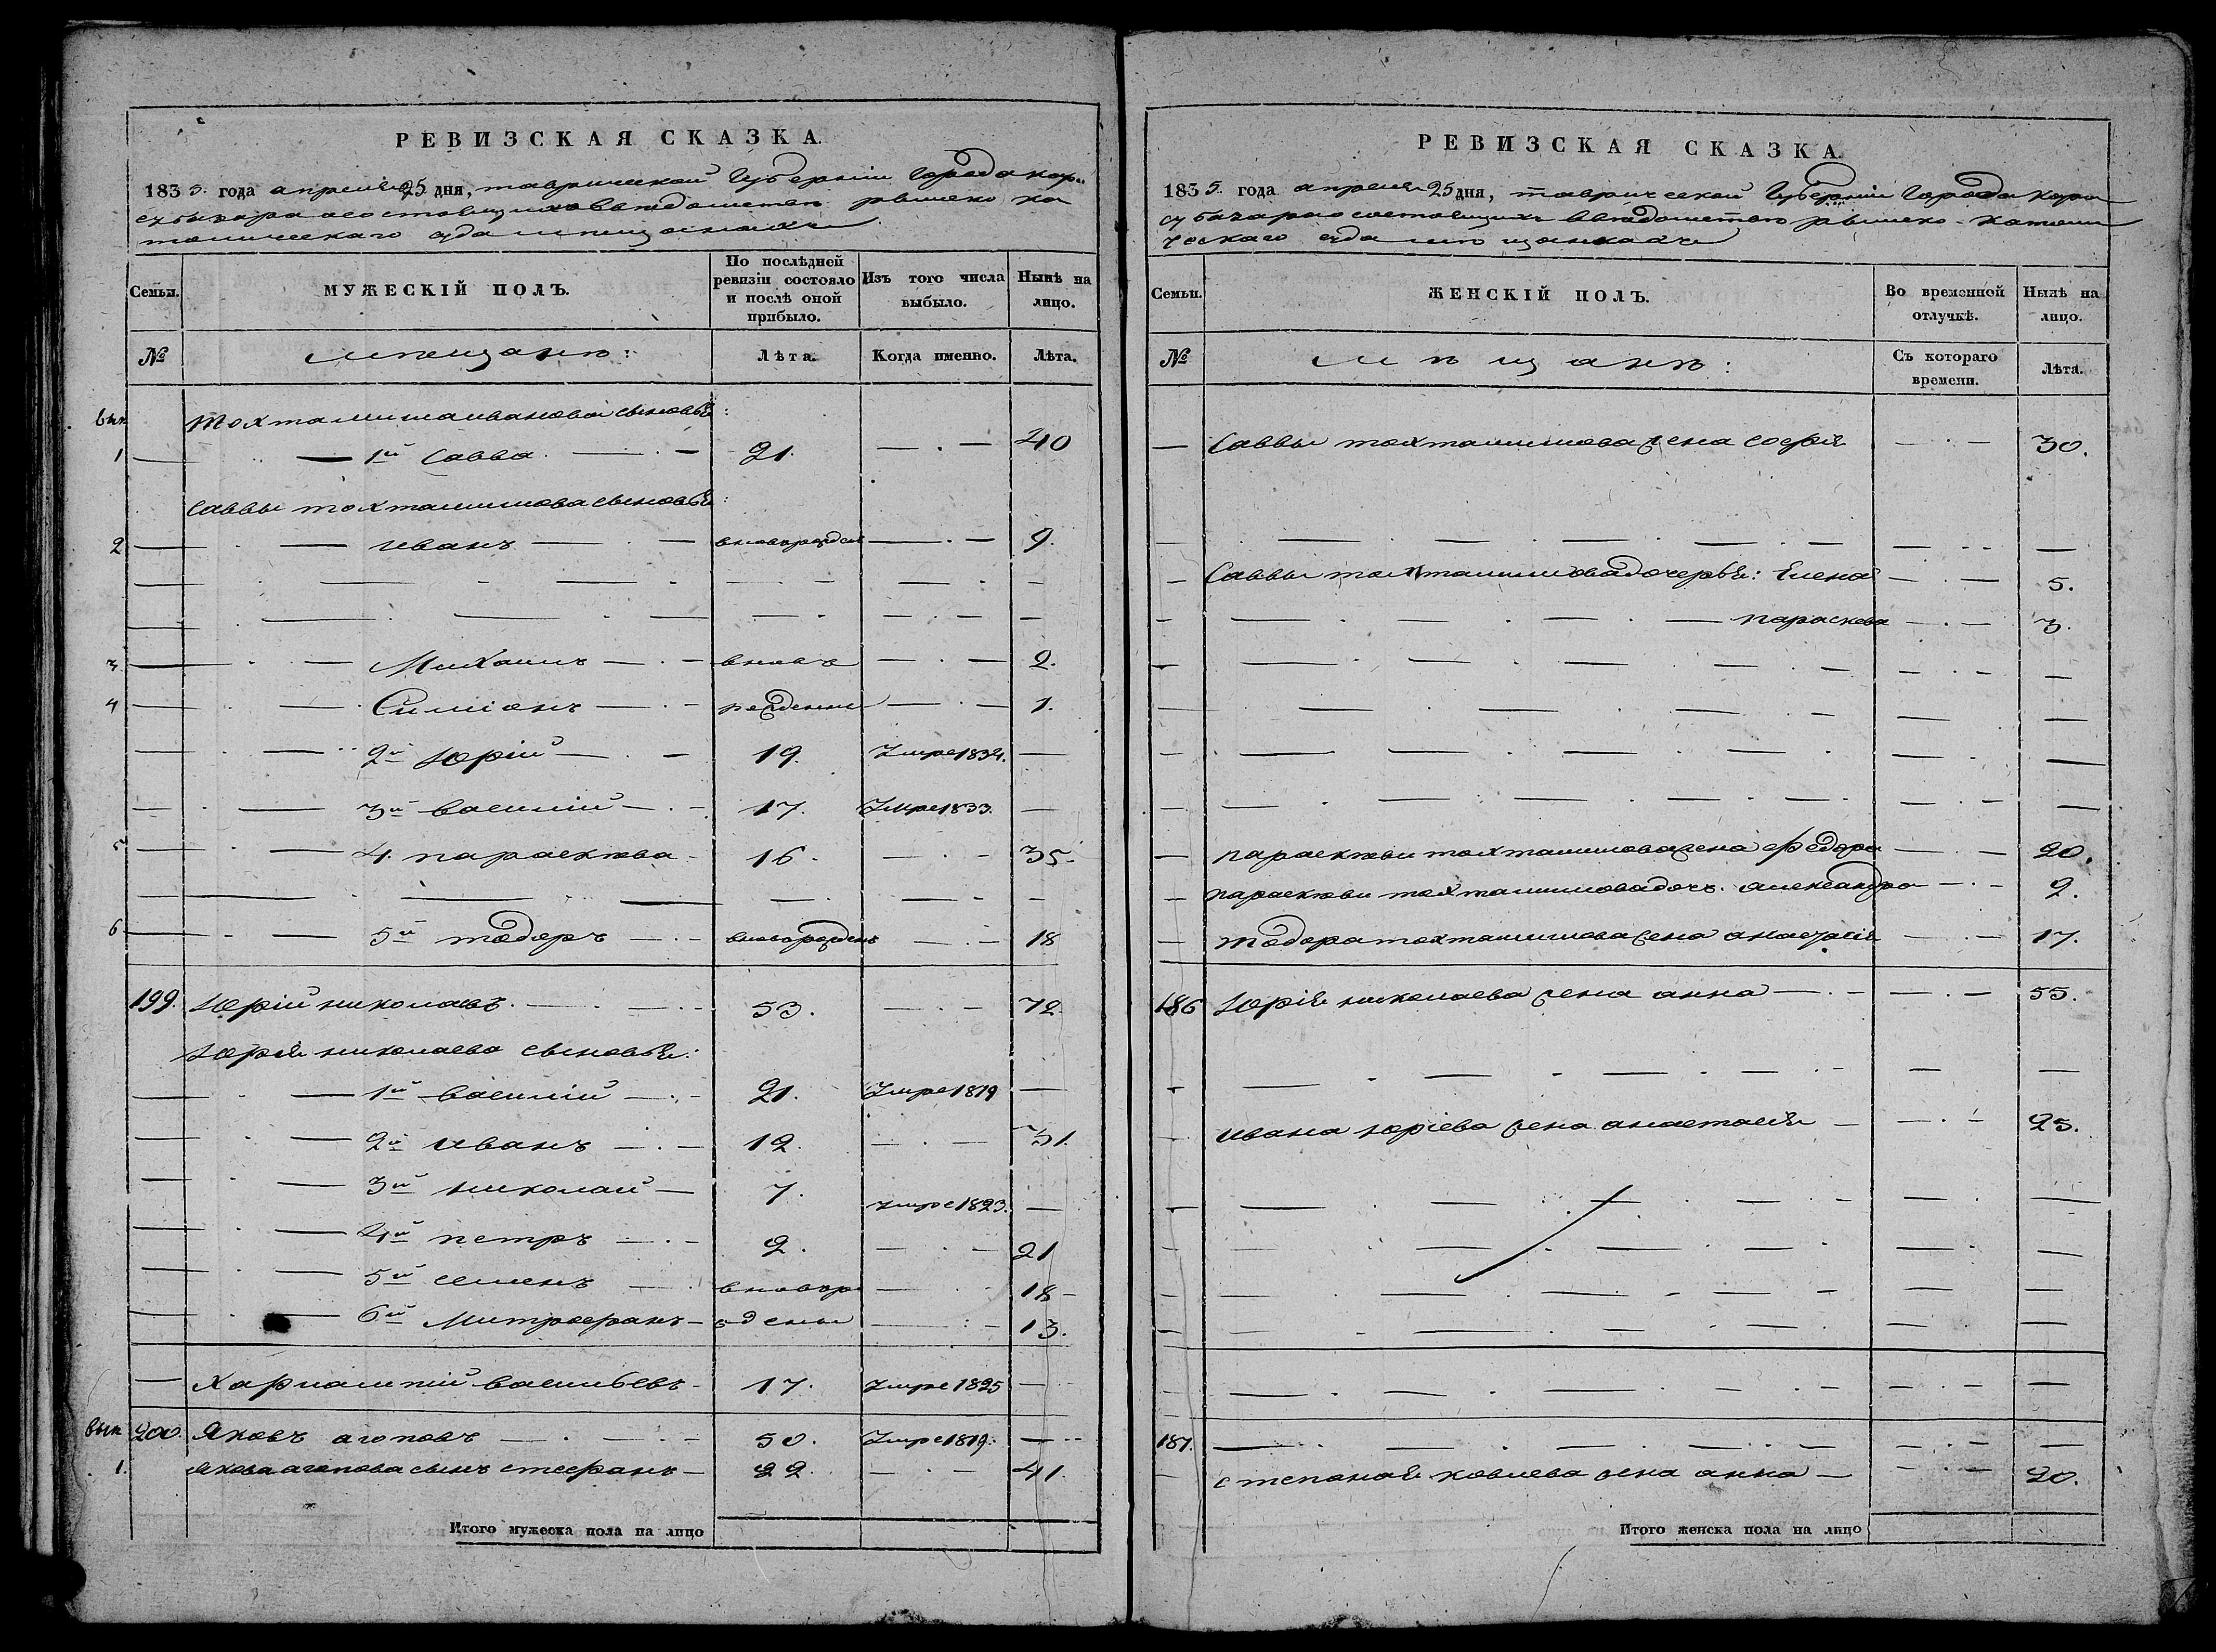 РЕВИЗСКАЯ СКАЗКА.
1835. года апреля 25 дня, таврической Губерніи Города кара
субазара о состоящихъ в ведомстве римско ка
толическаго суда мещанахъ
Семьи.
МУЖЕСКІЙ ПОЛЪ.
По послѣдней ревизіи состояло и послѣ оной прибыло.
Изъ того числа выбыло.
Нынѣ на лицо.
№ мещане: Лѣта. Когда именно. Лѣта.
тохтамиша иванова сыновья:
1 1й Савва. 21. 40
Саввы тохтамишова сыновья:
2 иванъ вновьрожден 9.
3 Михаилъ вновь 2.
4 Симіонъ рожденни 1.
2й юрій 19. Умре 1834.
3й василій 17. Умре 1833.
5 4. параскева 16. 35.
6 5й тодоръ вноворожденъ 18
199. Юрій николаевъ. 53. 72.
Юрія николаева сыновья:
1й василій 21. Умре 1819
2й иванъ 12. 31.
3й николай 7. Умре 1823.
4й петръ 2. 21
5й семенъ вновьро 18
6й Митрофанъ ждены 13.
Харлампій васильевъ 17. Умре 1825
200. Яковъ агоповъ 50. Умре 1819.
1. Якова агопова сынъ стефанъ 22. 41.
Итого мужеска пола на лицо
РЕВИЗСКАЯ СКАЗКА.
1835. года апреля 25 дня, таврической Губерніи Города кара
субазара о состоящихъ в ведомстве римско-католи
ческаго суда мещанкахъ
Семьи.
ЖЕНСКІЙ ПОЛЪ.
Во временной отлучкѣ.
Нынѣ на лицо.
№ мещане: Съ котораго времени. Лѣта.
Саввы тохтамишова жена софия 30.
Саввы тохтамишова дочерья: Елена 5.
параскева 3.
параскеви тохтамишова жена федора 20.
параскеви тохтамишова дочь. александра 2.
тодора тохтамишова жена анастасія 17.
186 Юрія николаева жена анна 55.
ивана юріева жена анастасія 25.
187.
степана яковлева жена анна 20.
Итого женска пола на лицо